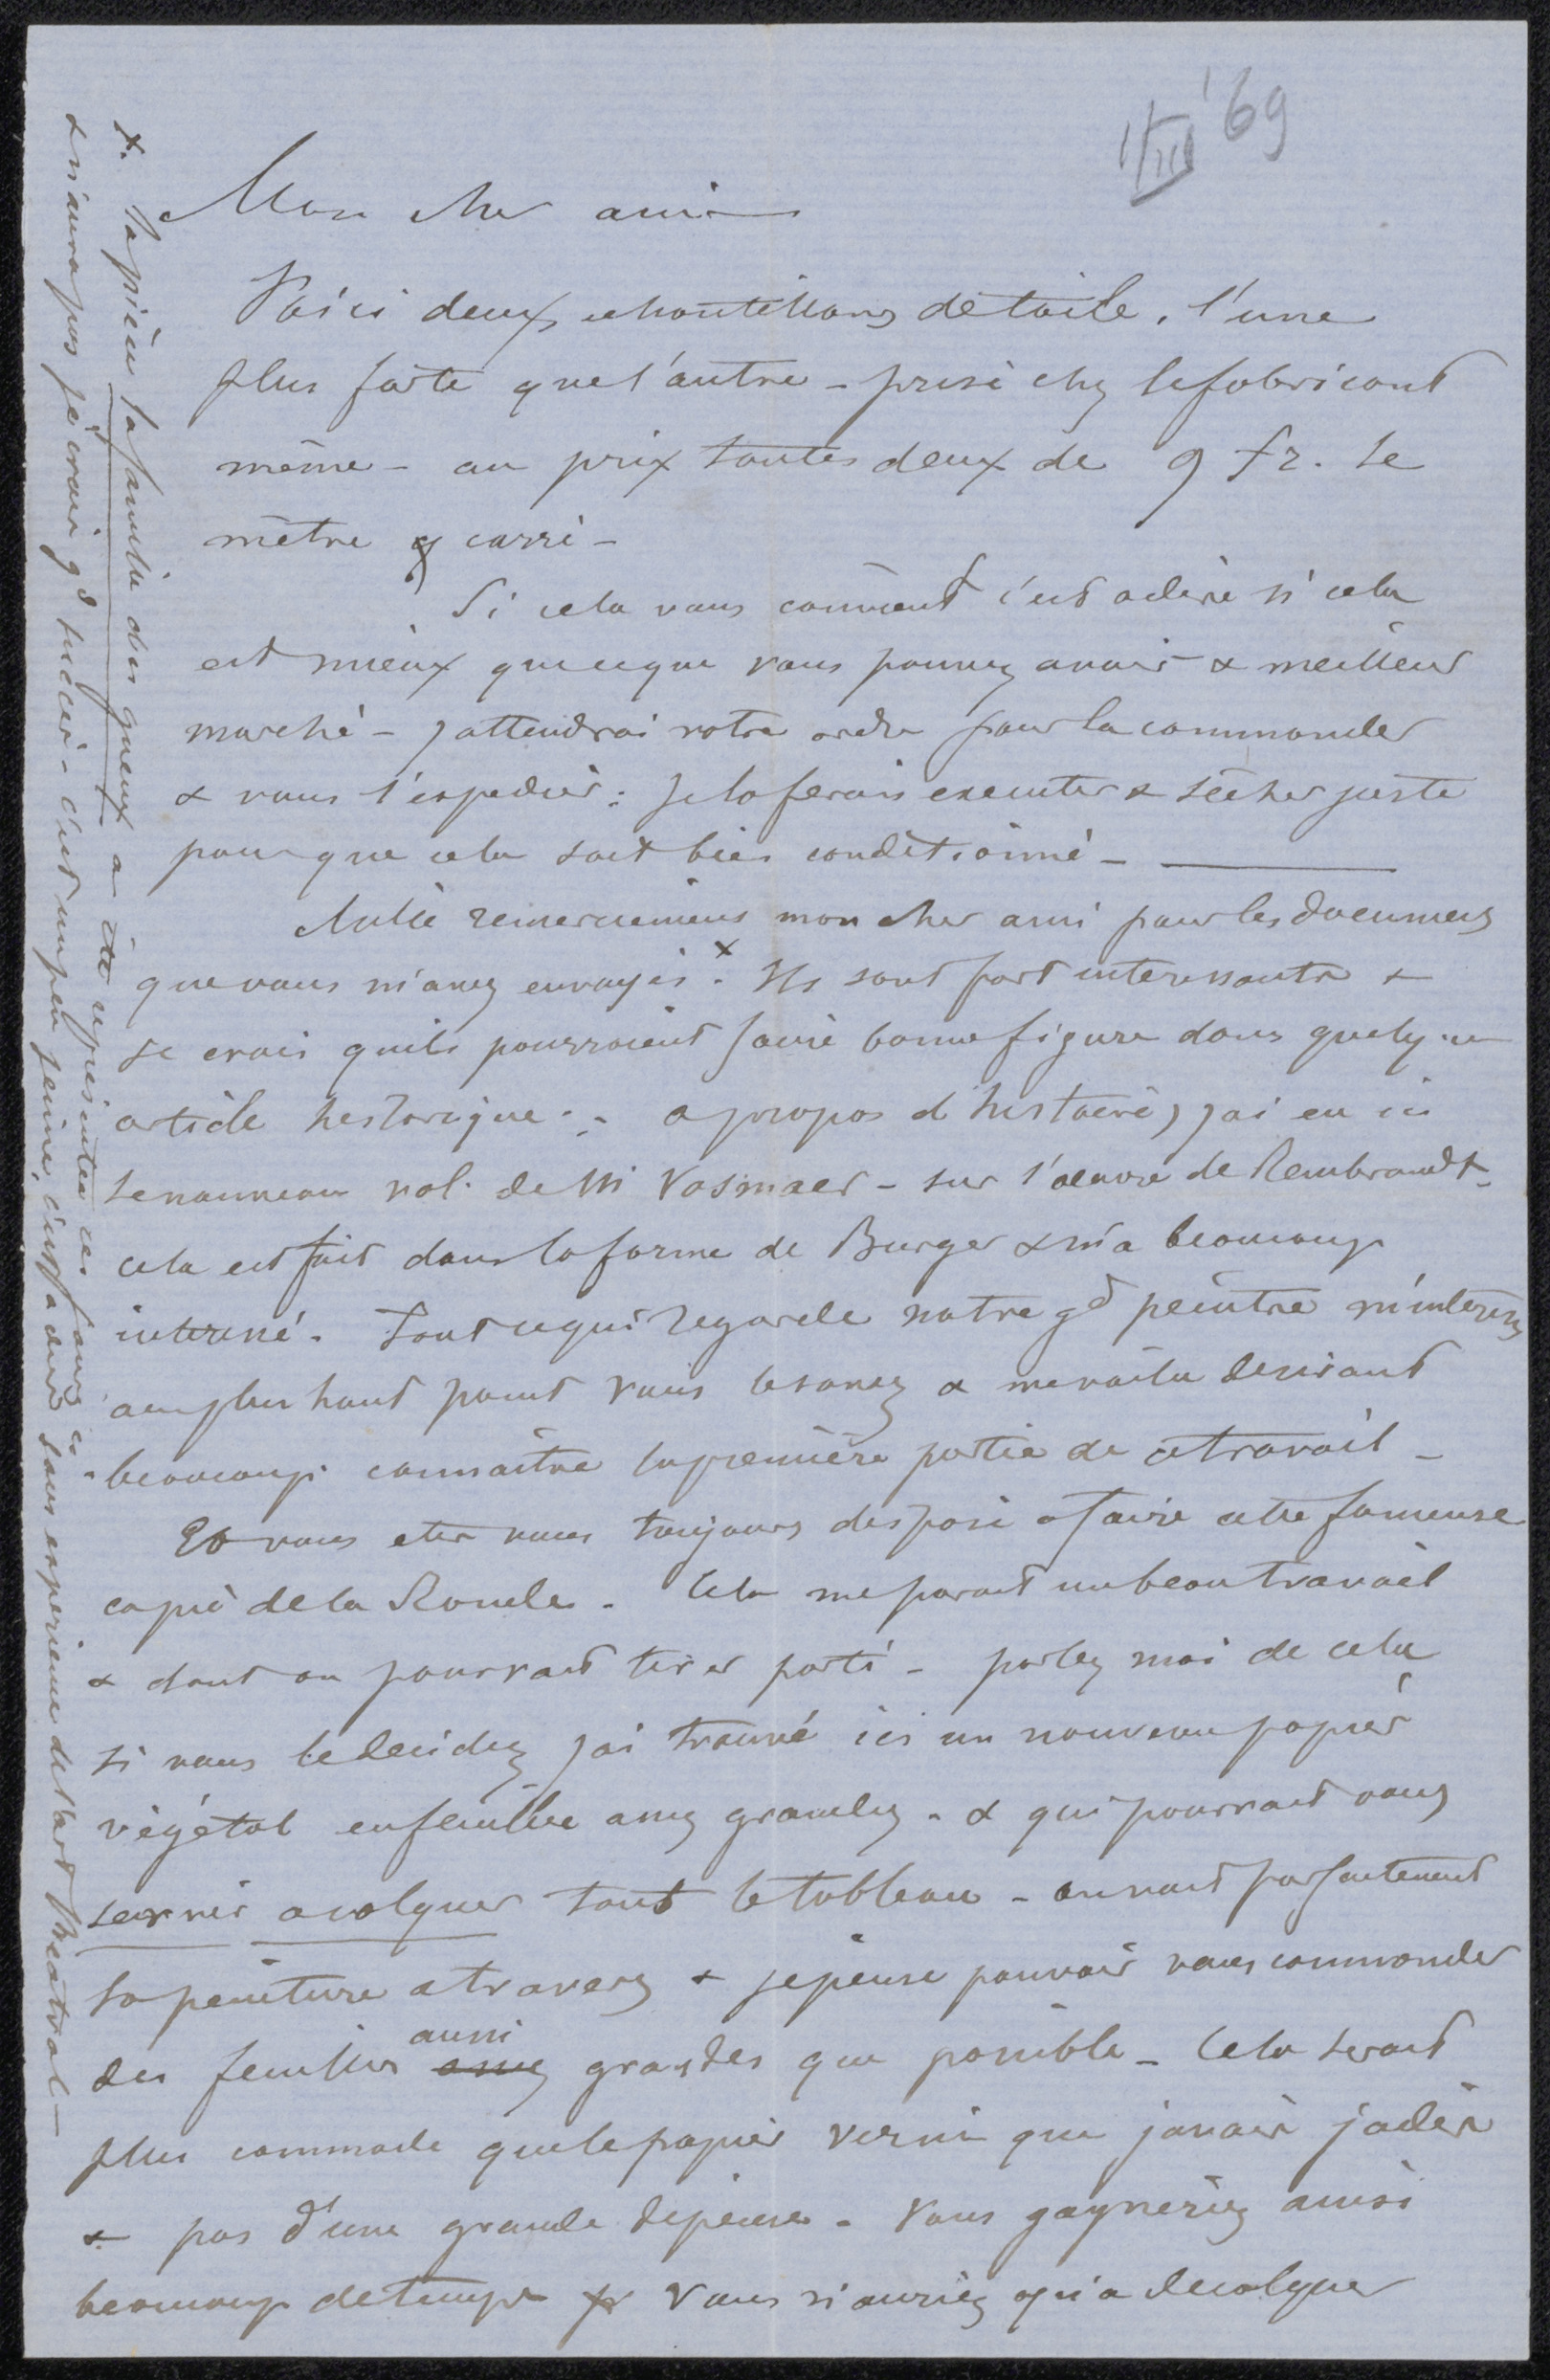 1/III '69
Mon cher ami
Voici deux echantillons de toile, l'une
plus forte que l'autre - prise chez le fabricant
même - au prix toutes deux de 9 fr. le
mètre carré -
Si cela vous convient c'est a dire si cela
est mieux que ce que vous pouvez avoir & meilleur
marché - j attendrai votre ordre pour la commander
& vous l'expedier : je la ferais executer & sécher juste
pour que cela soit bien conditionné -
Mille remerciemens mon cher ami pour les documens
que vous m'avez envoyés x. Ils sont fort interessants &
je crois quils pourroient faire bonne figure dans quelque
article historique : - a propos d histoire, j ai eu ici
le nouveau vol. de Mr Vosmaer - sur l'oeuvre de Rembrandt -
cela est fait dans la forme de Burger & m'a beaucoup
interessé. Tout ce qui regarde notre gd peintre m'interesse
au plus haut point vous le savez & me voila desirant
beaucoup connaître la première partie de ce travail -
Et vous etes vous toujours disposé a faire cette fameuse
copie de la Ronde. Cela me parait un beau travail
& dont on pourrait tirer parti - parlez moi de cela
si vous le decidez j ai trouvé ici un nouveau papier
végétal en feuilles assez grandes. & qui pourrait vous
servir a calquer tout le tableau - on voit parfaitement
la peinture a travers & je pense pouvoir vous commander
des feuilles assez aussi grandes que possible - Cela serait
plus commode que le papier verni que j avais jadis
& pas d'une grande depense - Vous gagneriez ainsi
beaucoup de temps Vous n'auriez qu'a decalquer
x. La pièce la famille des gueux a été representée ces jours ci
& n'aura pas je crois gd succès - c'est un peu jeune, c'est a dire sans experience de l'art théatral -